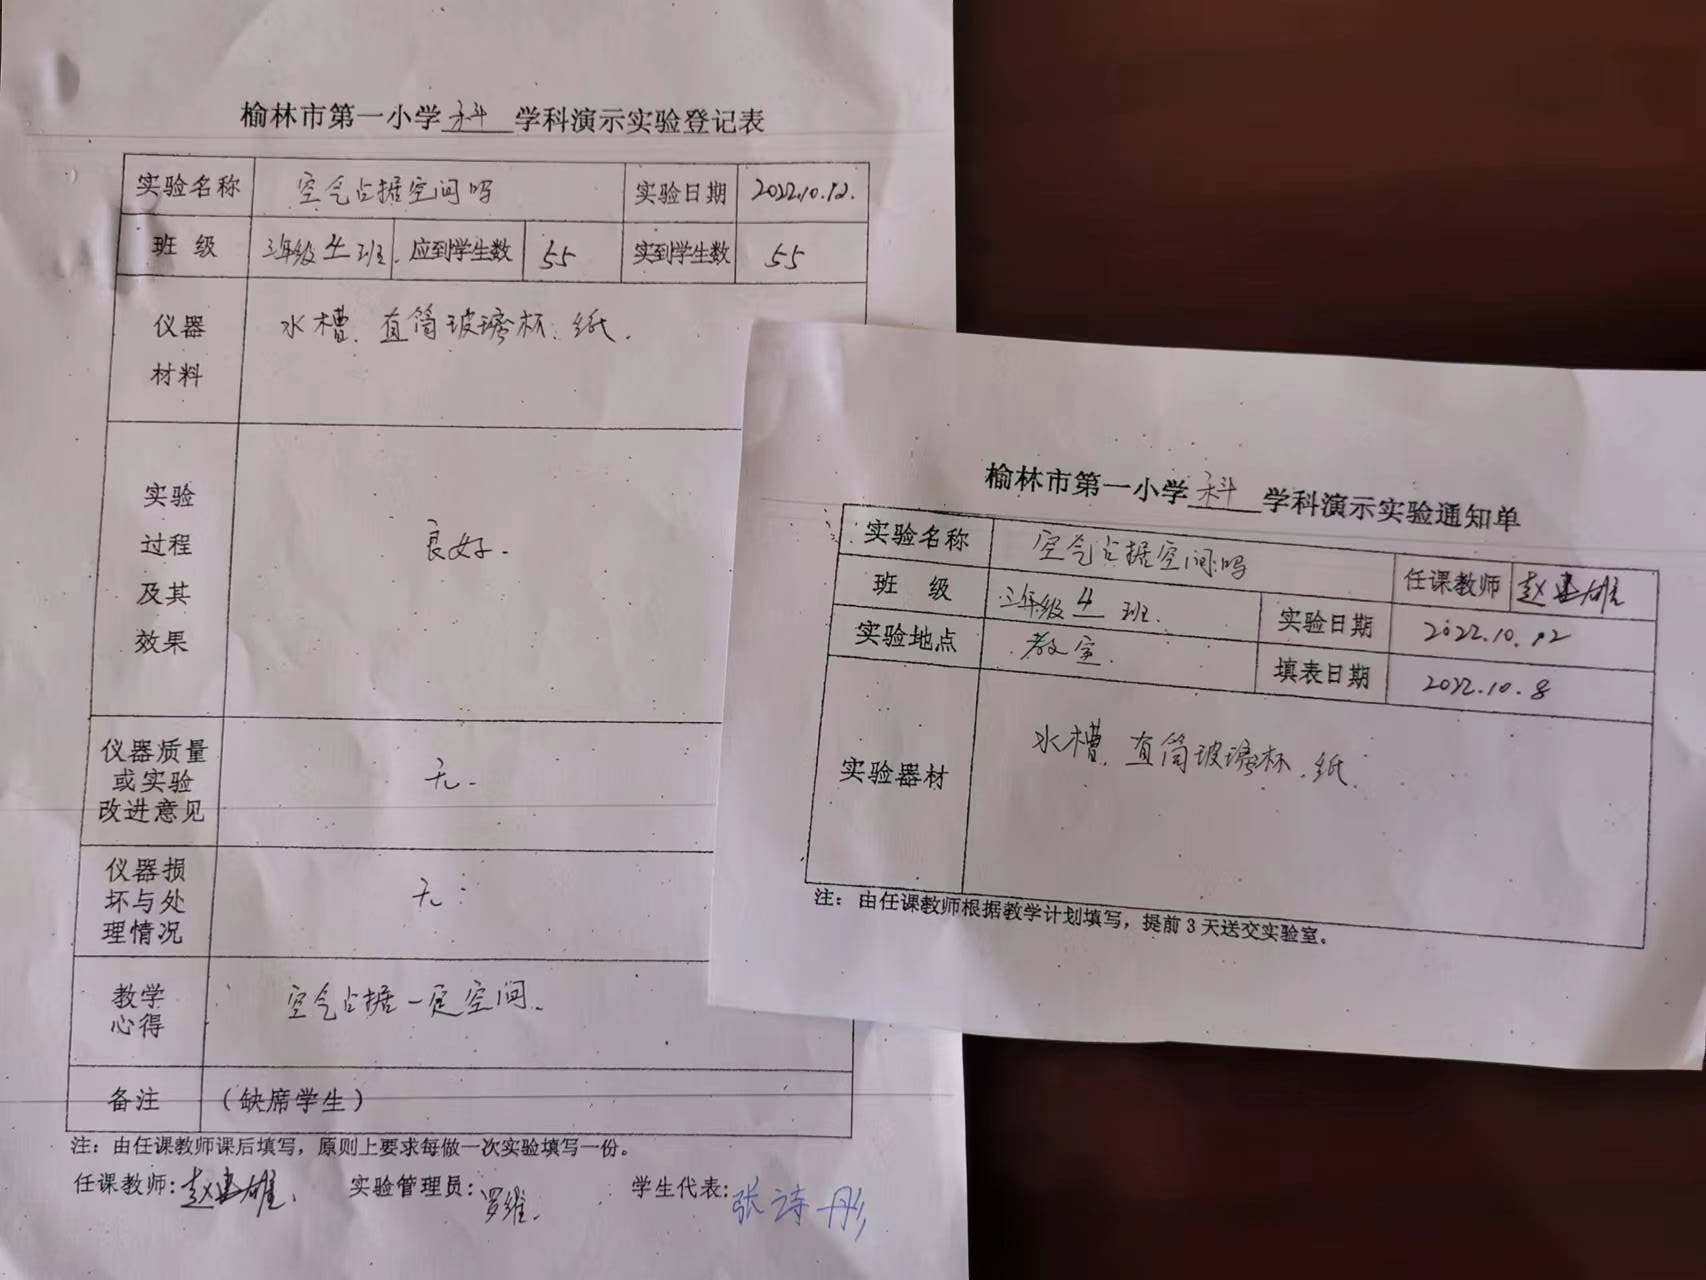 榆林市第一小学 科 学科演示实验登记表
实验名称 空气占据空间吗 实验日期 2022.10.12.
班 级 三年级 4 班. 应到学生数 55 实到学生数 55
仪器
材料
水槽、直筒玻璃杯、纸.
实验
过程
及其
效果
良好.
仪器质量
或实验
改进意见
无.
仪器损
坏与处
理情况
无.
教学
心得
空气占据一定空间.
备注 (缺席学生)
注：由任课教师课后填写，原则上要求每做一次实验填写一份。
任课教师: 赵建雄 实验管理员: 罗维. 学生代表: 张诗彤
榆林市第一小学 科 学科演示实验通知单
实验名称 空气占据空间吗 任课教师 赵建雄
班 级 三年级 4 班. 实验日期 2022.10.12
实验地点 教室. 填表日期 2022.10.8
实验器材 水槽、直筒玻璃杯、纸
注：由任课教师根据教学计划填写，提前3天送交实验室。